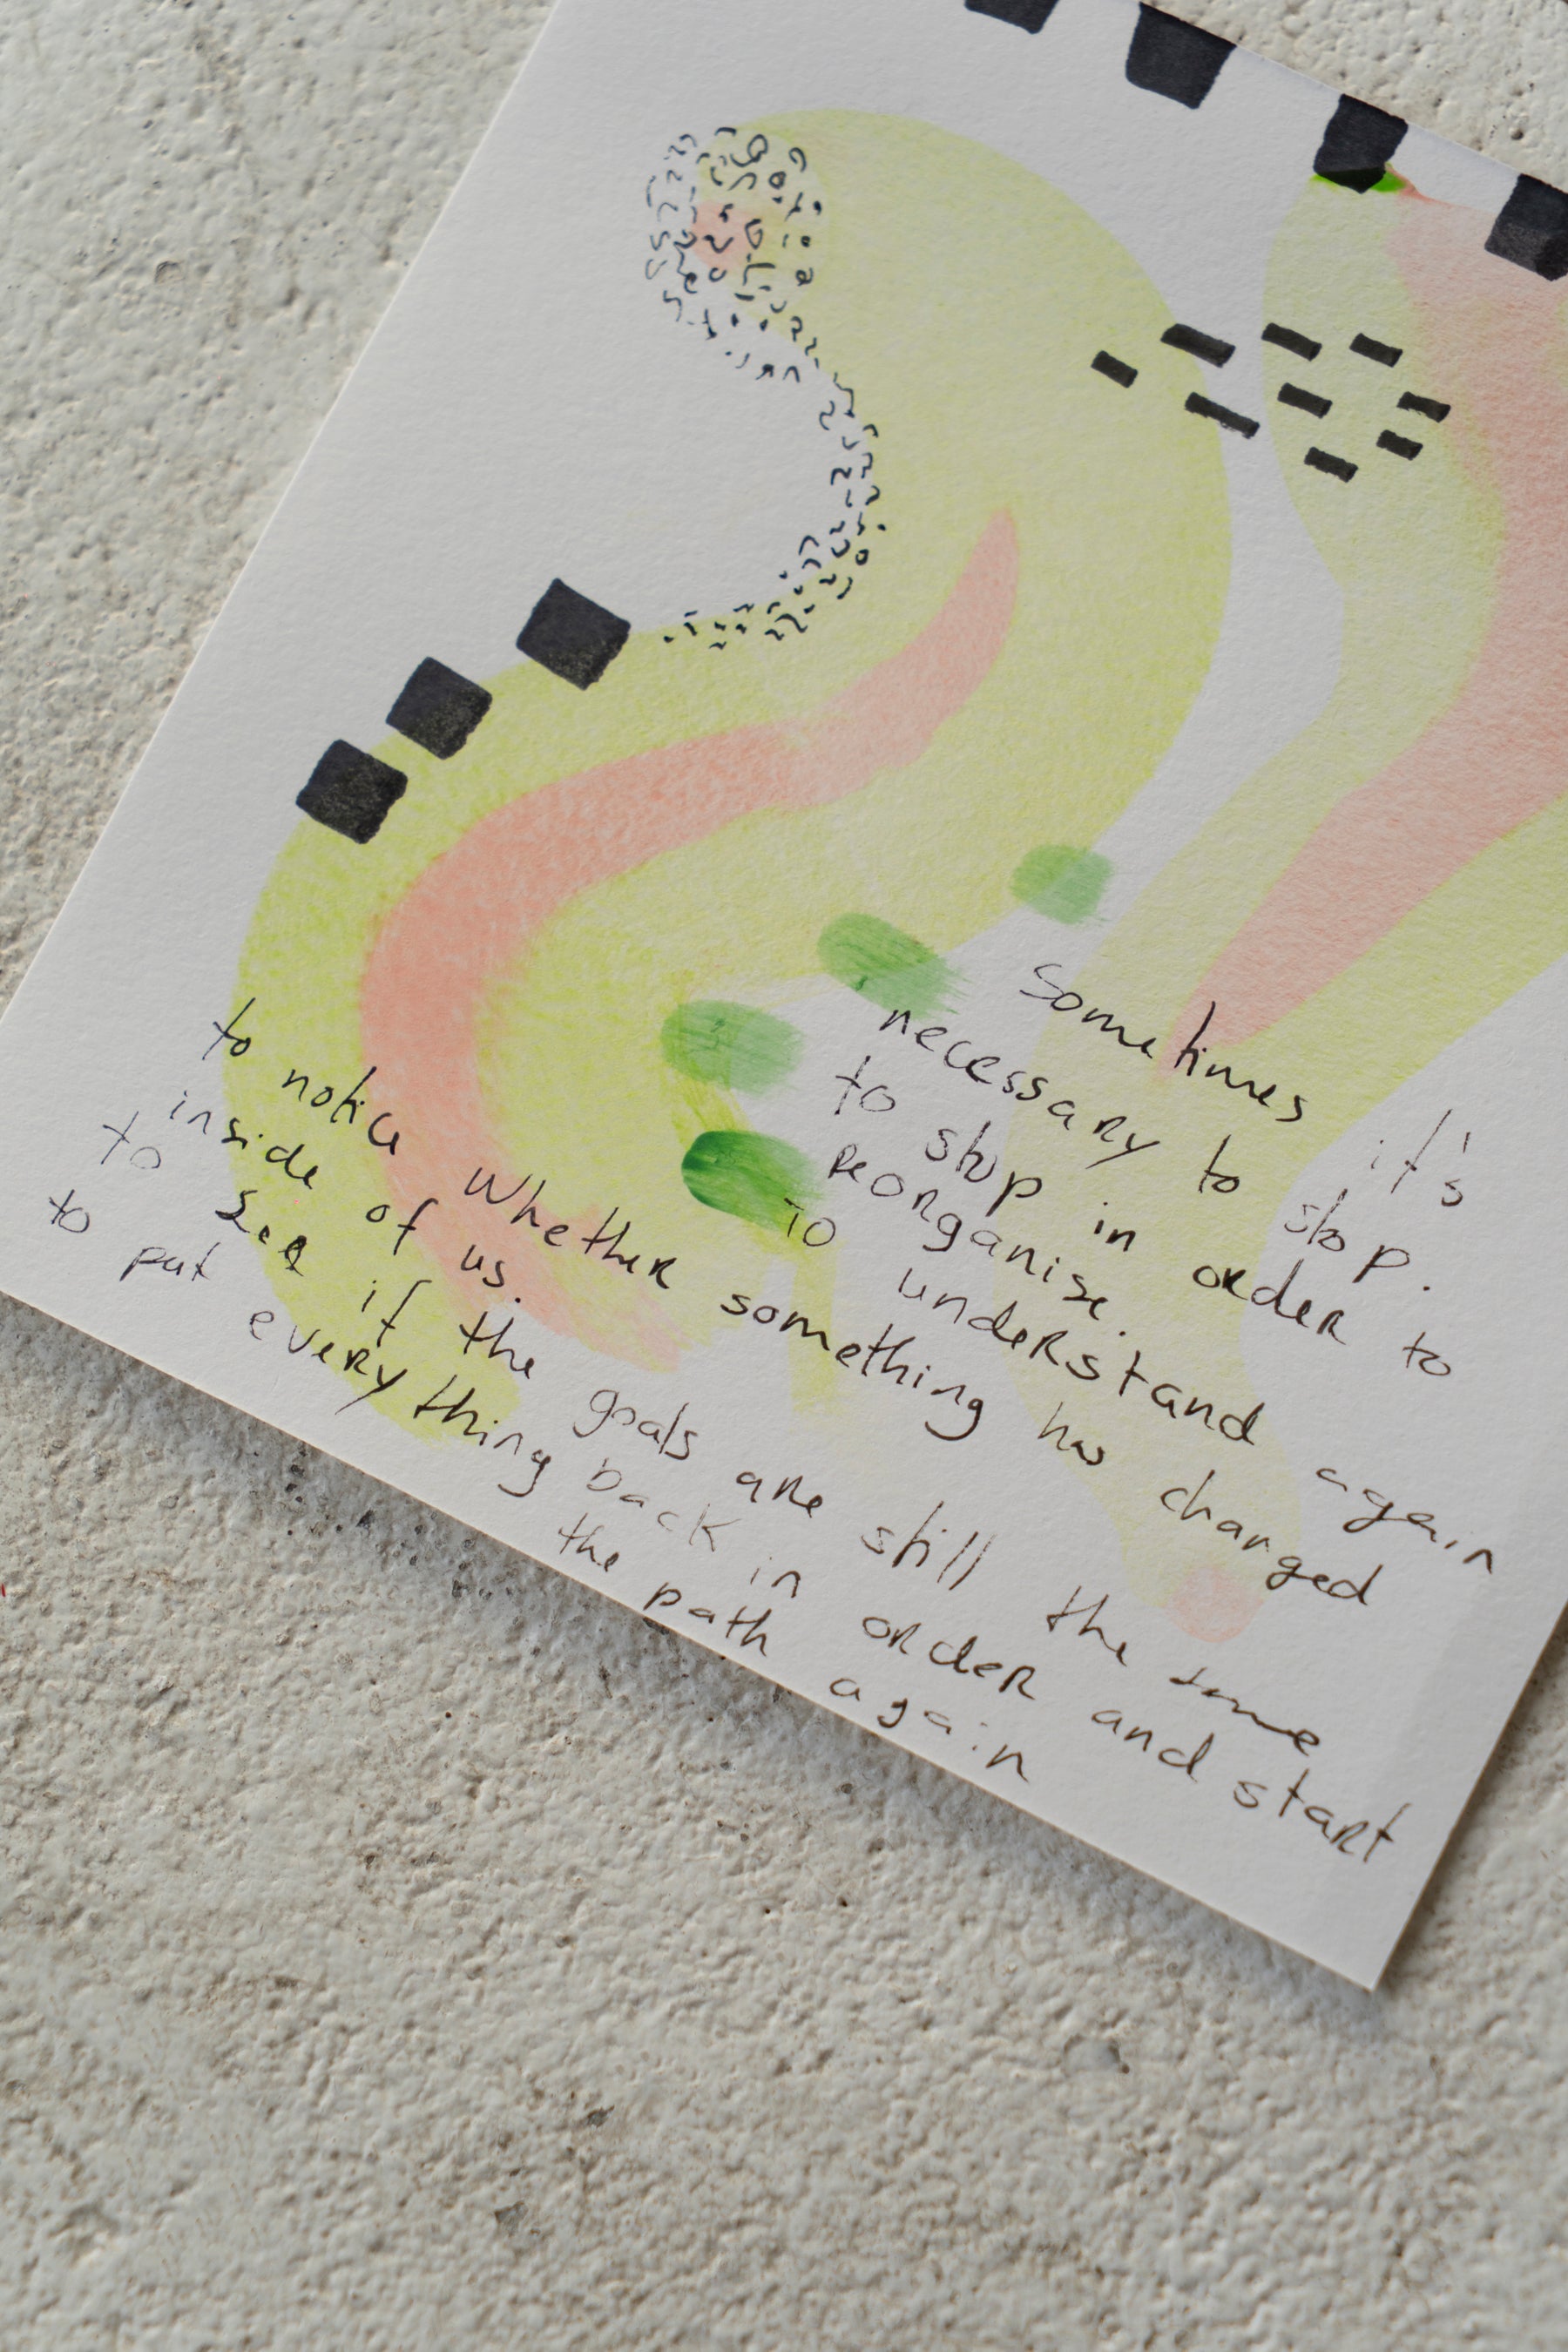 Sometimes it's
necessary to stop.
to stop in order to
reorganise.
To understand again
to notice whether something has changed
inside of us.
to see if the goals are still the same
to put everything back in order and start
the path again